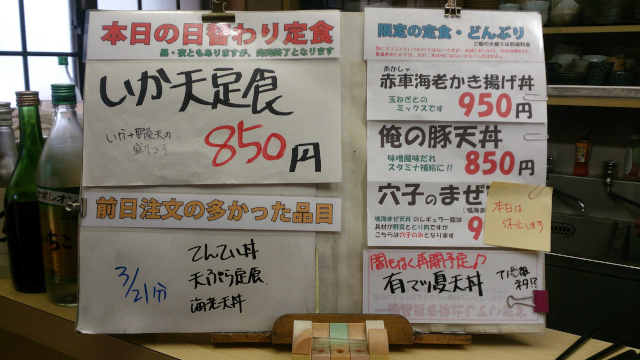 本日の日替わり定食
昼・夜ともありますが、完売終了となります
いか天定食
いか+野菜天の
盛り
850円
前日注文の多かった品目
3/21分
てんてい丼
天ぷら定食
海老天丼
限定の定食・どんぶり
ご飯の大盛りは別途料金
あかしゃ
赤車海老かき揚げ丼
玉ねぎとの
ミックスです
950円
俺の豚天丼
味噌風味だれ
スタミナ補給に!!
850円
穴子のまぜ
鳴海まぜ天丼 のレギュラー版は
具材が野菜ととり肉ですが
こちらは穴子のみとなります
9
本日は
休止します
間もなく再開予定♪
有マツ夏天丼